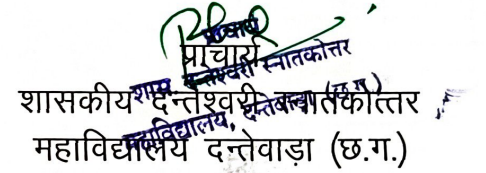 प्राचार्य
शासकीय दन्तेश्वरी स्नातकोत्तर
महाविद्यालय दन्तेवाड़ा (छ.ग.)
प्राचार्य
शास. दन्तेश्वरी स्नातकोत्तर
महाविद्यालय, दन्तेवाड़ा (छ.ग.)